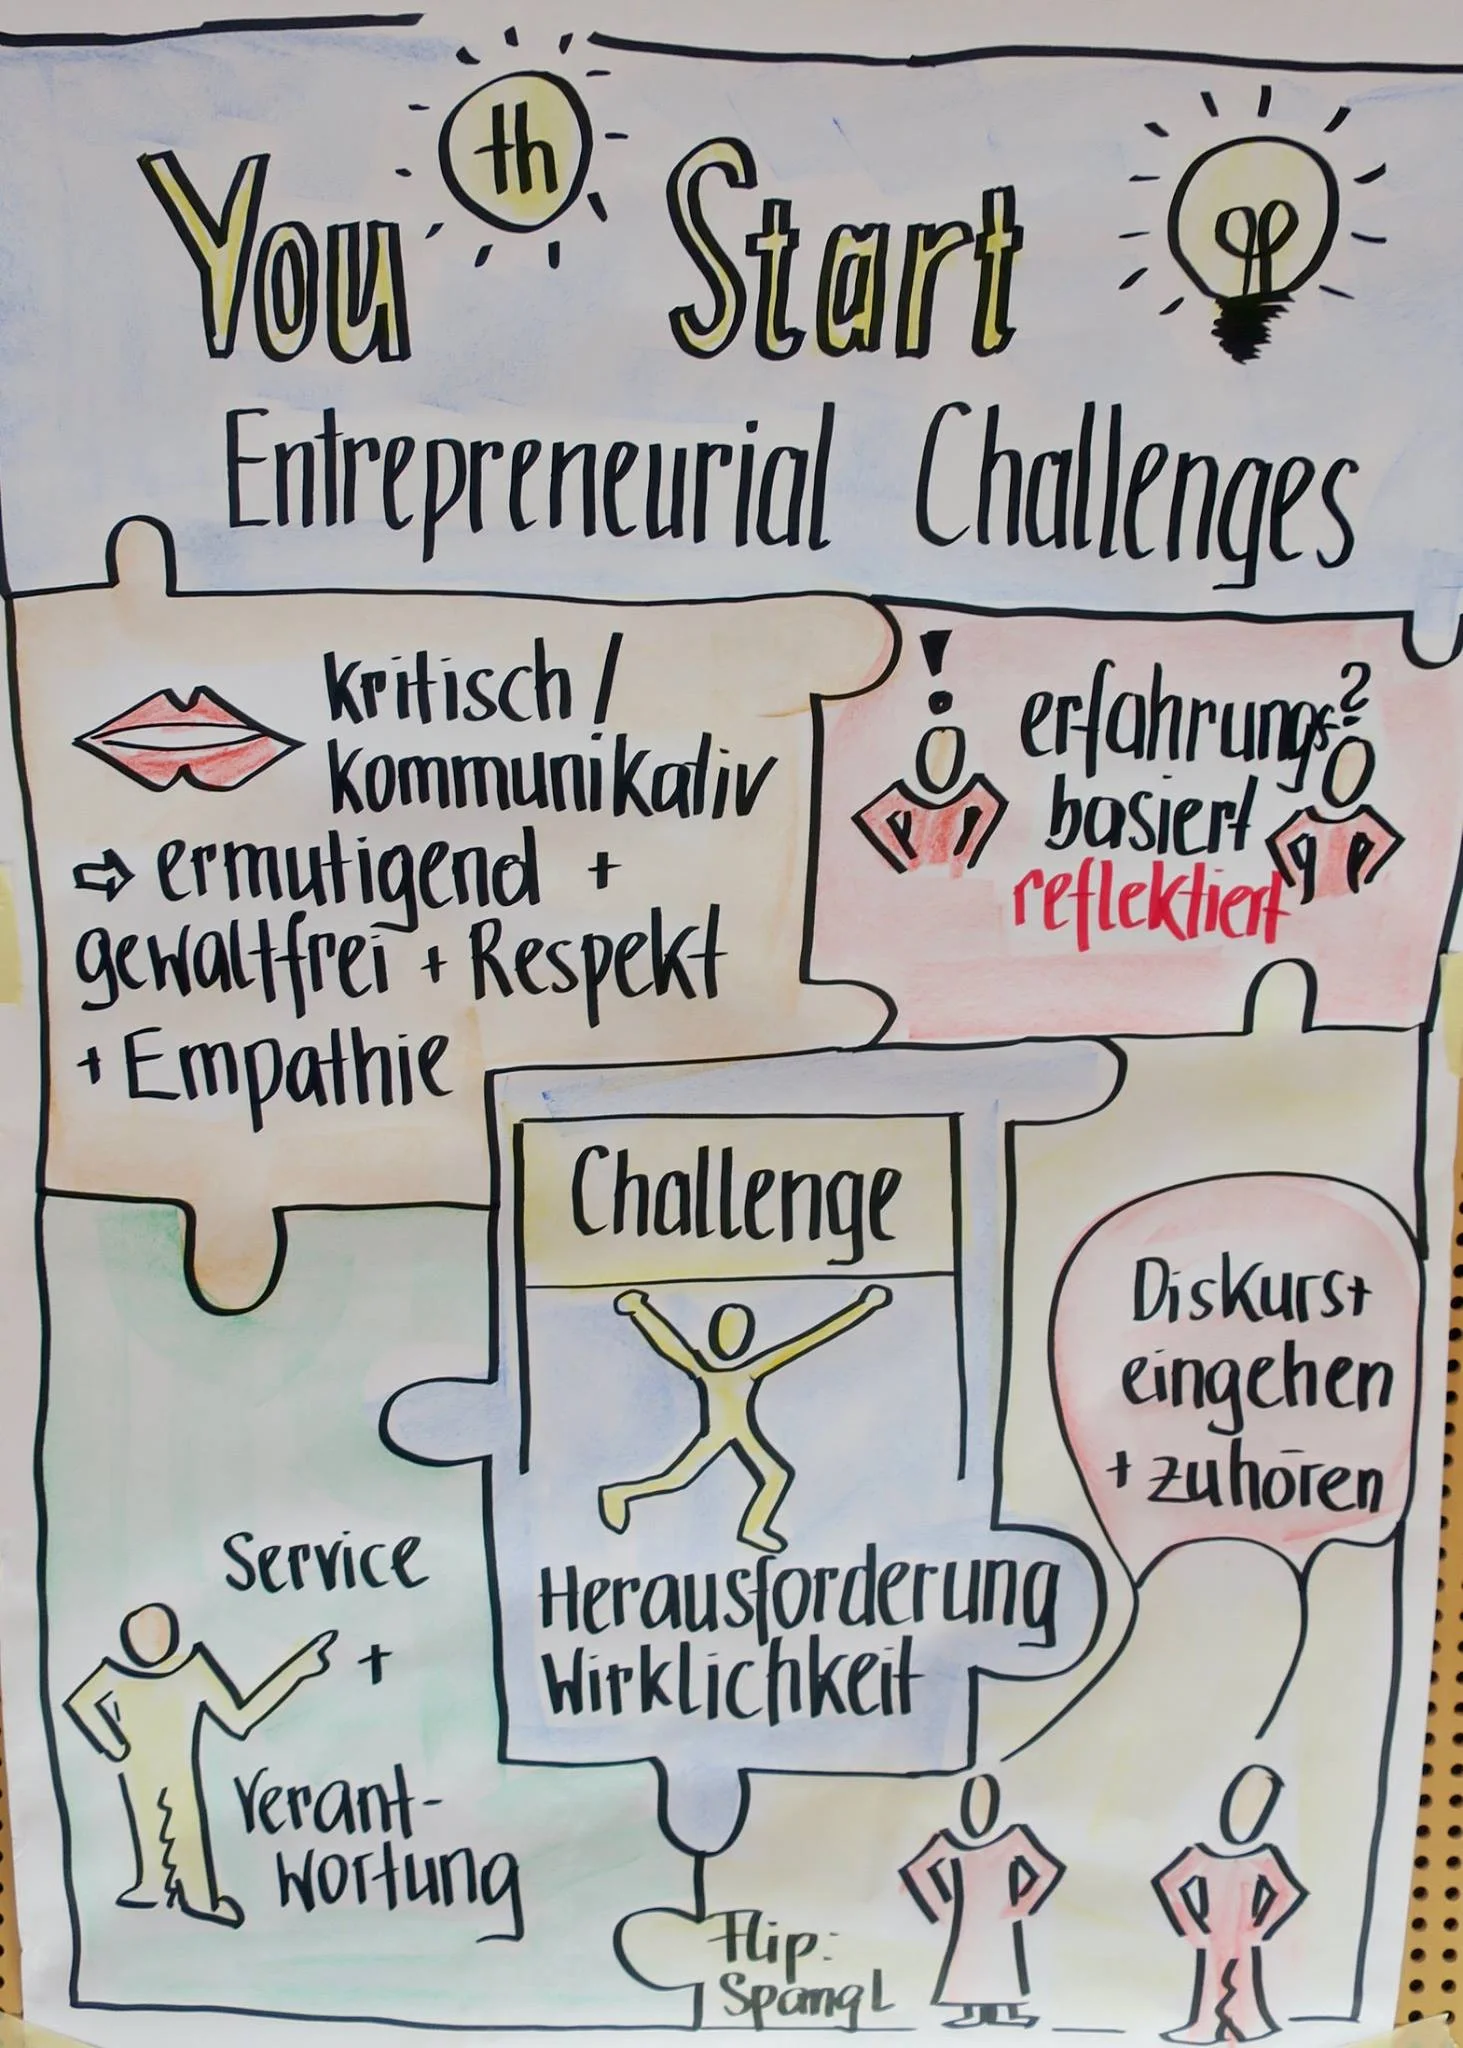 Youth Start
Entrepreneurial Challenges
kritisch/
kommunikativ
⇨ ermutigend +
gewaltfrei + Respekt
+ Empathie
! erfahrungs- ?
basiert
reflektiert
Challenge
Herausforderung
Wirklichkeit
Diskurs +
eingehen
+ zuhören
Service
+
Verant-
wortung
Flip:
Spangl